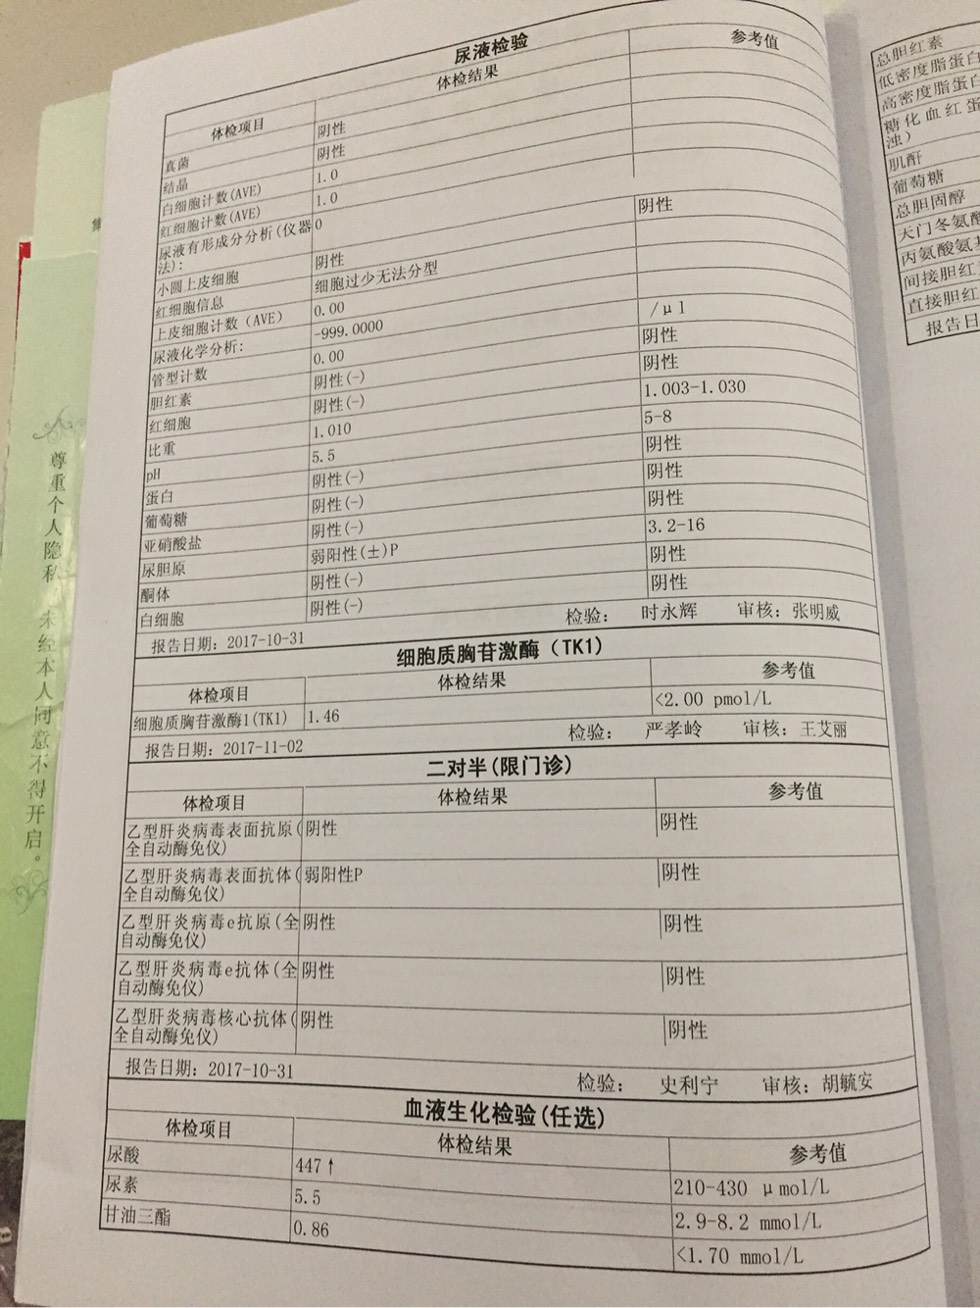 尿液检验
体检项目 体检结果 参考值
真菌 阴性
结晶 阴性
白细胞计数(AVE) 1.0
红细胞计数(AVE) 1.0
尿液有形成分分析(仪器 0
法):
小圆上皮细胞 阴性 阴性
红细胞信息 细胞过少无法分型
上皮细胞计数（AVE） 0.00
尿液化学分析: -999.0000
管型计数 0.00 /μl
胆红素 阴性(-) 阴性
红细胞 阴性(-) 阴性
比重 1.010 1.003-1.030
pH 5.5 5-8
蛋白 阴性(-) 阴性
葡萄糖 阴性(-) 阴性
亚硝酸盐 阴性(-) 阴性
尿胆原 弱阳性(±)P 3.2-16
酮体 阴性(-) 阴性
白细胞 阴性(-) 阴性
报告日期: 2017-10-31 检验: 时永辉 审核: 张明威
细胞质胸苷激酶（TK1）
体检项目 体检结果 参考值
细胞质胸苷激酶1(TK1) 1.46 <2.00 pmol/L
报告日期: 2017-11-02 检验: 严孝岭 审核: 王艾丽
二对半(限门诊)
体检项目 体检结果 参考值
乙型肝炎病毒表面抗原( 阴性 阴性
全自动酶免仪)
乙型肝炎病毒表面抗体( 弱阳性P 阴性
全自动酶免仪)
乙型肝炎病毒e抗原(全 阴性 阴性
自动酶免仪)
乙型肝炎病毒e抗体(全 阴性 阴性
自动酶免仪)
乙型肝炎病毒核心抗体( 阴性 阴性
全自动酶免仪)
报告日期: 2017-10-31 检验: 史利宁 审核: 胡毓安
血液生化检验(任选)
体检项目 体检结果 参考值
尿酸 447↑ 210-430 μmol/L
尿素 5.5 2.9-8.2 mmol/L
甘油三酯 0.86 <1.70 mmol/L
总胆红素
低密度脂蛋白
高密度脂蛋白
糖化血红蛋
浊）
肌酐
葡萄糖
总胆固醇
天门冬氨酸
丙氨酸氨基
间接胆红
直接胆红
报告日
尊重个人隐私 未经本人同意不得开启。